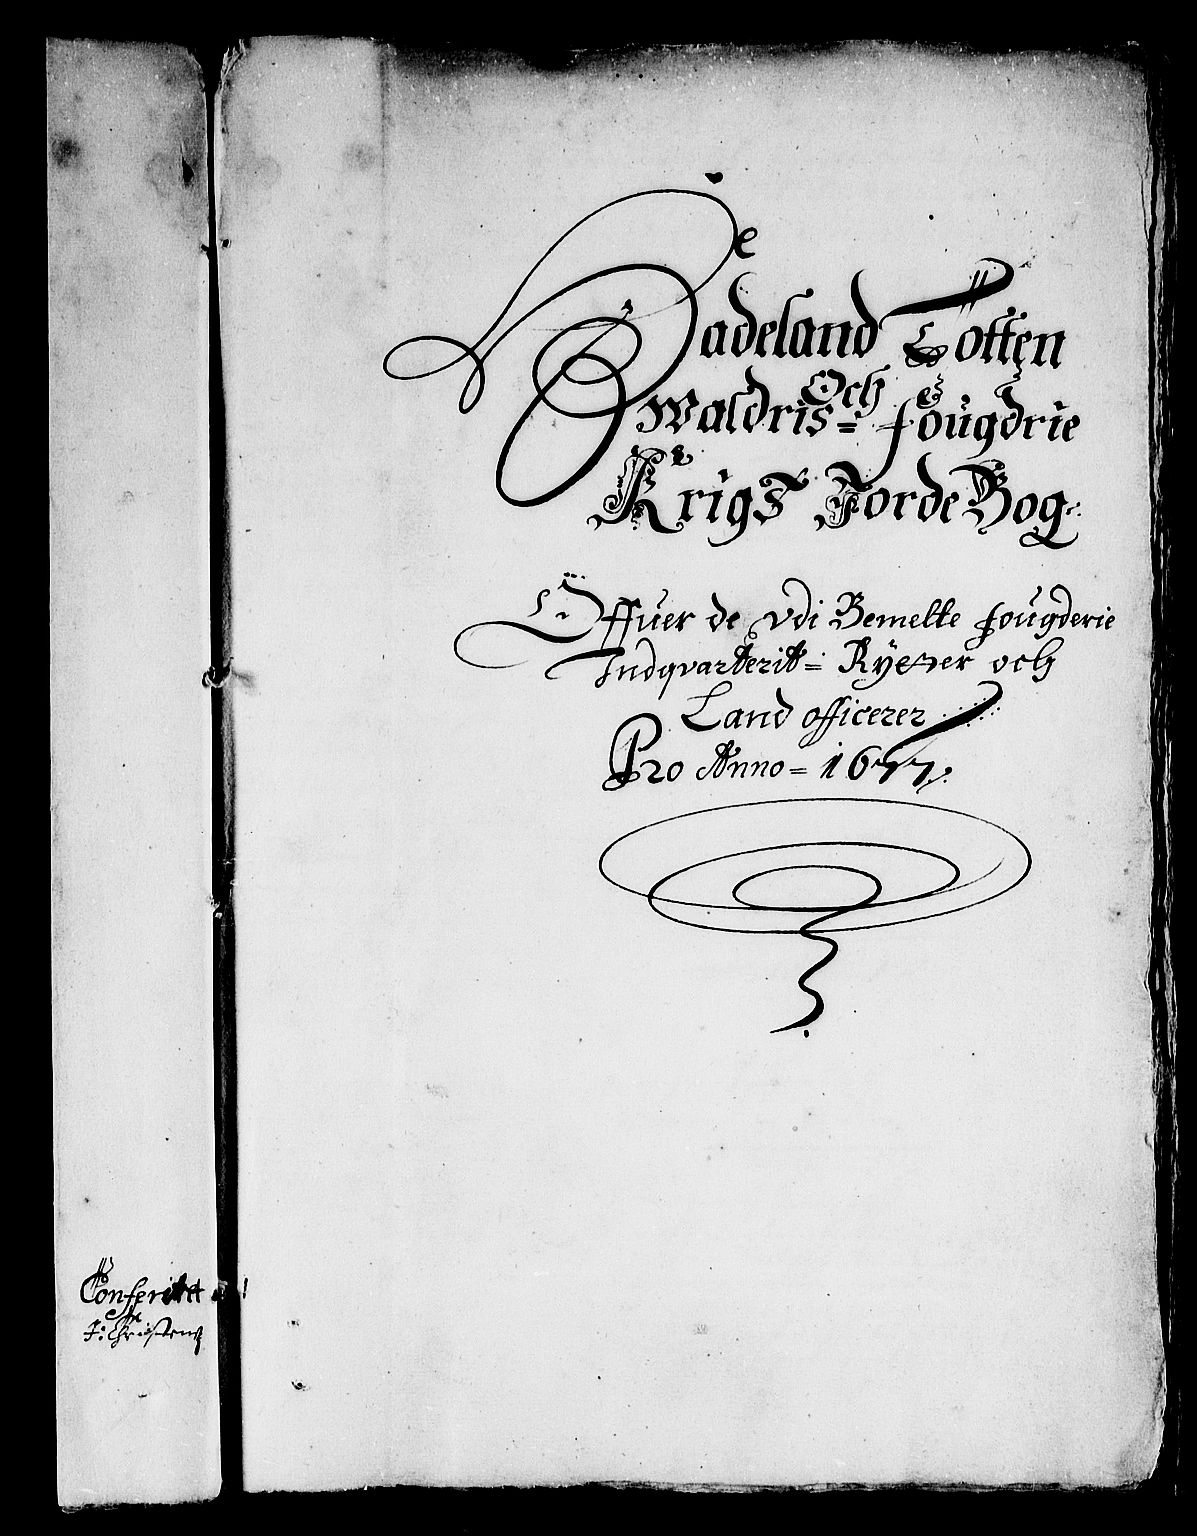 Hadeland Totten
Och
Waldris= fougdrie
Krigs JordeBog
Offuer de vdi Bemelte fougderie
Indqvarterit= Rytter och
Land officerer
Pro Anno= 1677
Conferit
J: Christens